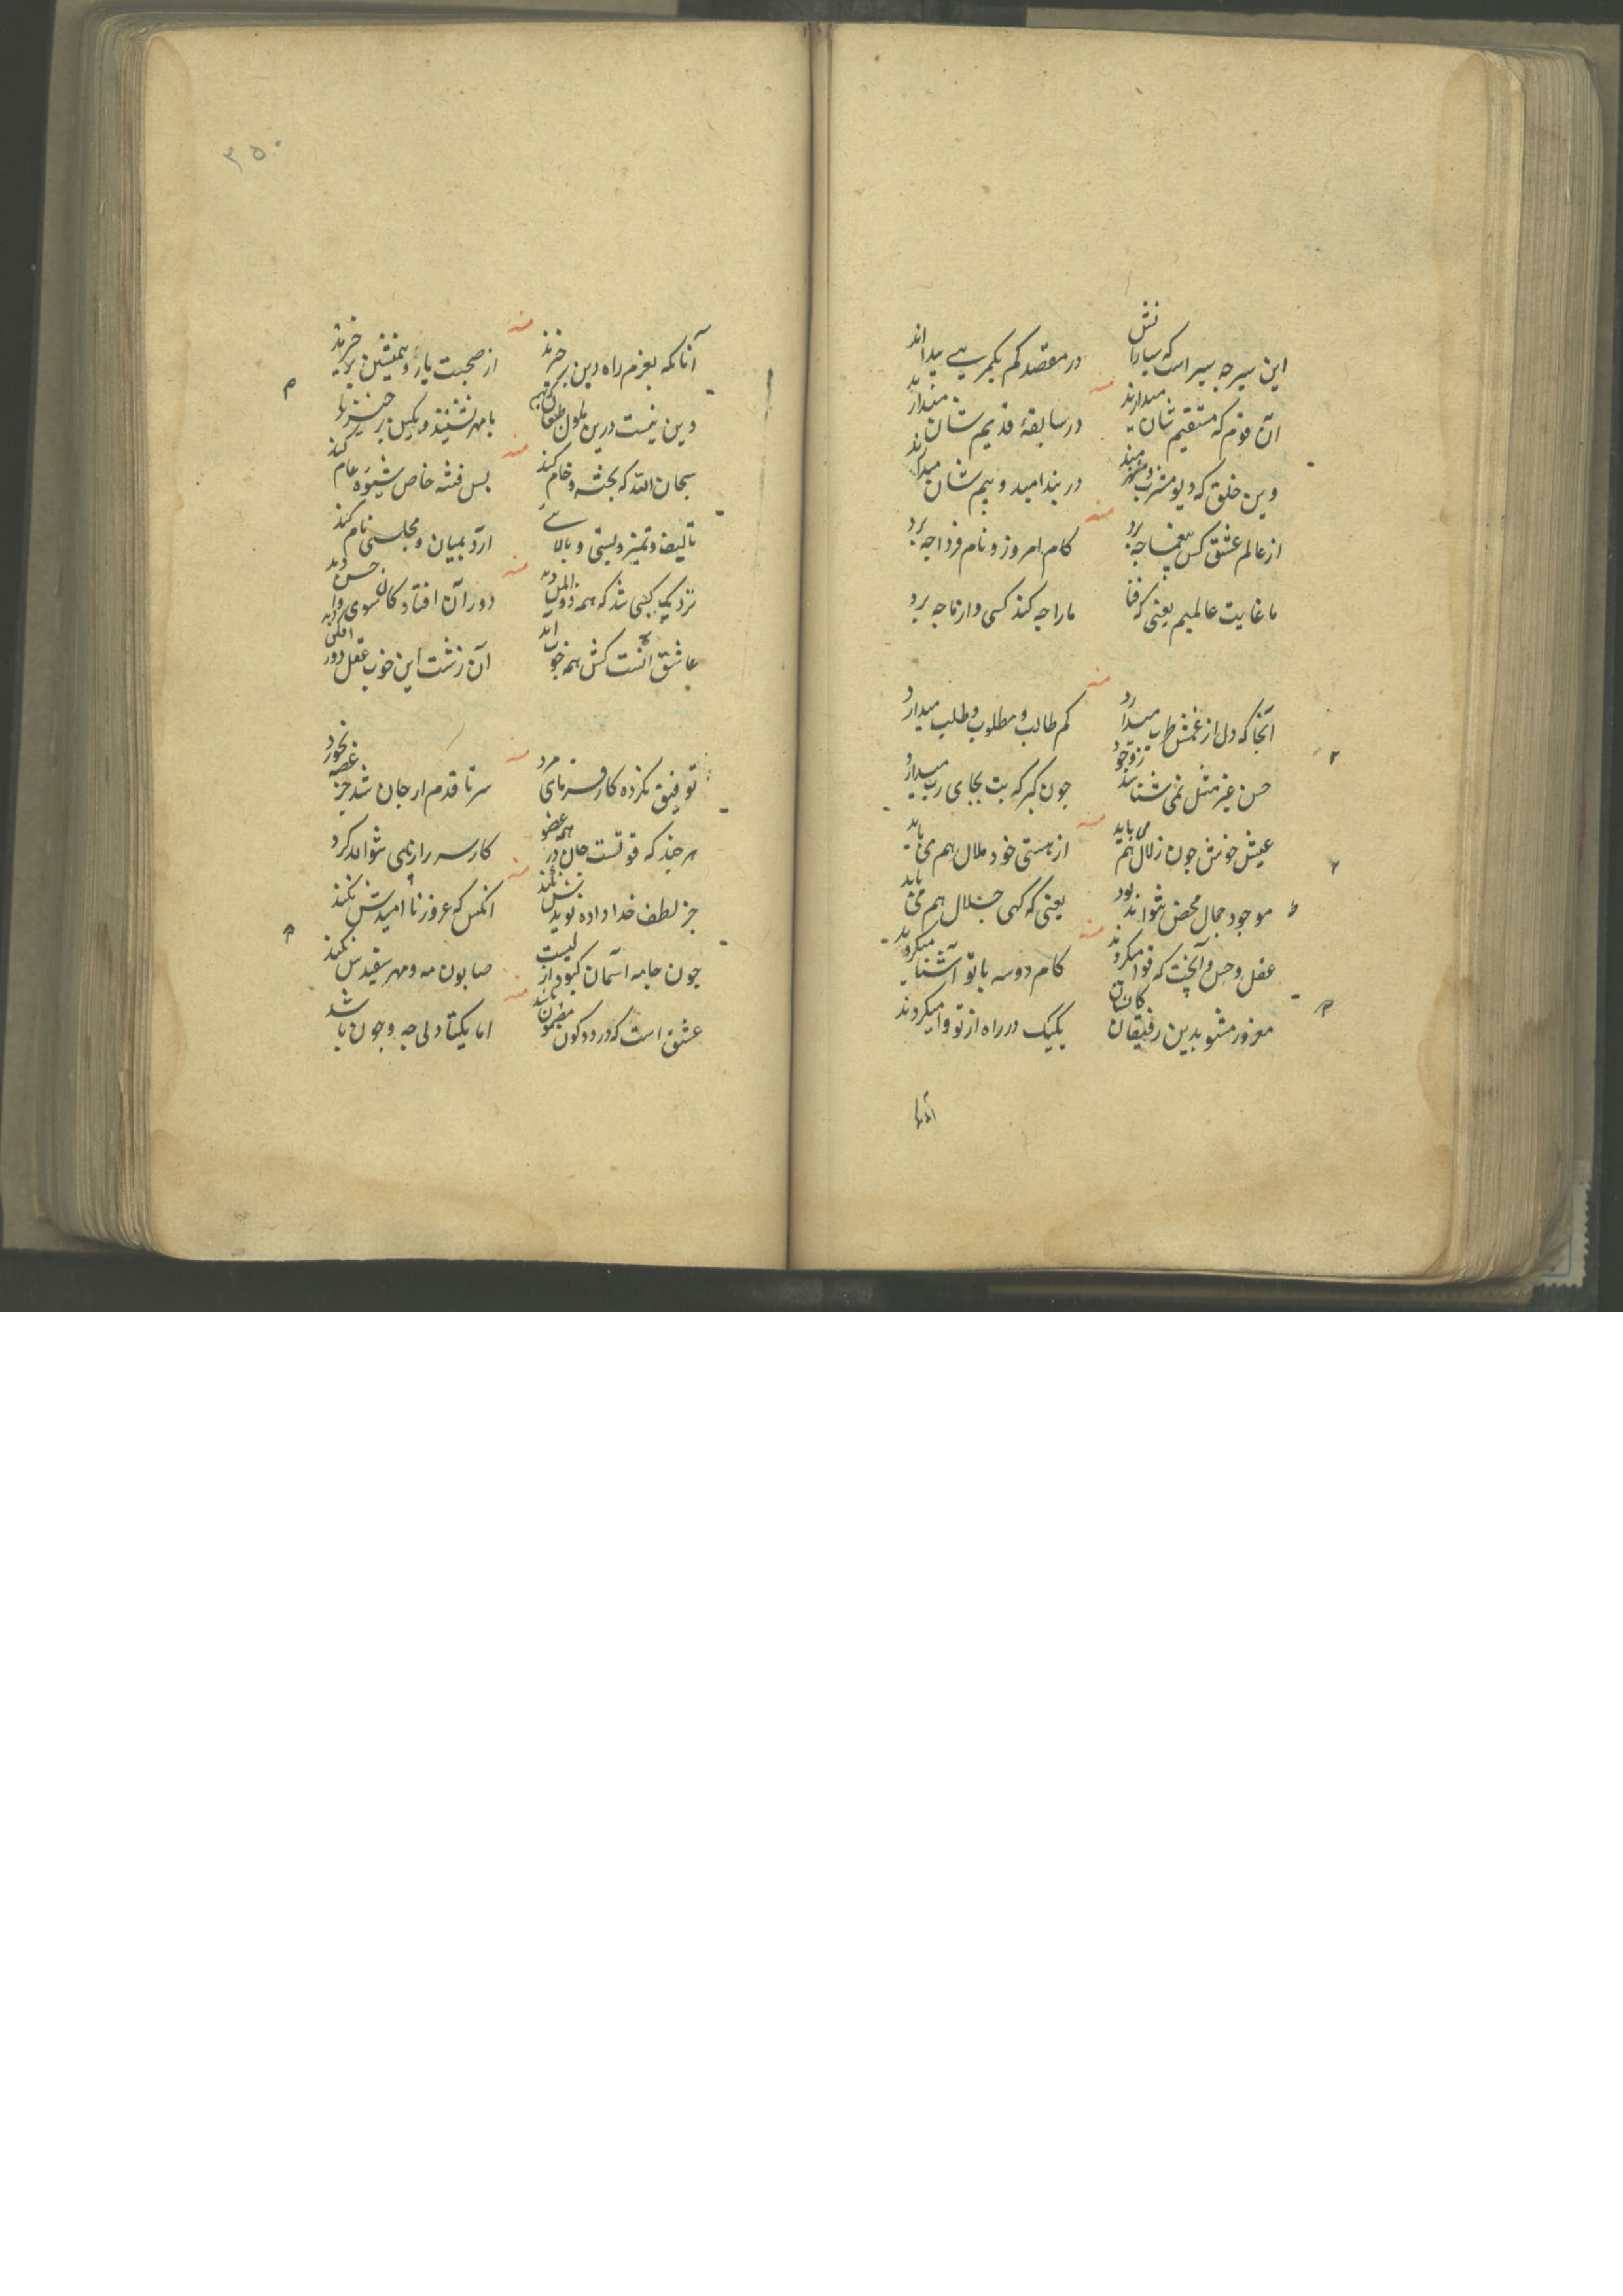 این سیر چه سیر است که سیارا نش در مقصد کم یکمر بی
آن قوم که مستقیم شان میدارند در سابقهٔ قدیم شان میدارند
وین خلق که دیو مشرب و در بند امید و بیم شان میدارند
از عالم عشق کس بیغما چه برد کام امروز و نام فردا چه برد
ما غایت عالمیم یعنی که فنا ما را چه کند کسی و از ما چه برد
آنجا که دل از غمش طرب میدارد کم طالب و مطلوب و طلب میدارد
حسن غیر مثل نمی شناسد ز وجود چون گبر که بت بجای رب میدارد
عیش خوش چون زلال هم می باید از هستی خود ملال هم می باید
موجود جمال محض نتواند بود یعنی که کهی جلال هم می باید
عقل و حس و آنچت که قوا میکردند کام دو سه با تو آشنا میکردند
مغرور مشو بدین رفیقان کایشان یکیک در راه از تو وا میکردند
۳۵۰
آنانکه بعزم راه دین برخیزند از صحبت یار و همنشین برخیزند
دین نیست درین با مهر نشینند و بکین برخیزند
سبحان الله که پخته و خام کند بس فتنه خاص شیوه عام کند
تالیف و تمیز و پستی و بالایی آرد بمیان و مجلسی نام کند
نزدیک کسی شد که همه دور آن افتاد کان سوی
عاشق آنست کش همه خوب آن زشت این خوب عقل دور
توفیق نکرده کار فرمای مرد سر تا قدم ار جان شد جز غصه نخورد
هر چند که قوتست جان در همه عضو کار سر را ز پای نتواند کرد
جز لطف خدا داده نویدش نکند آنکس که عروز نا امیدش نکند
چون جامه آسمان کبود از لیست صابون مه و مهر سفیدش نکند
عشق است که در دو کون مضمون باشد اما یکتا دلی چه و چون باشد